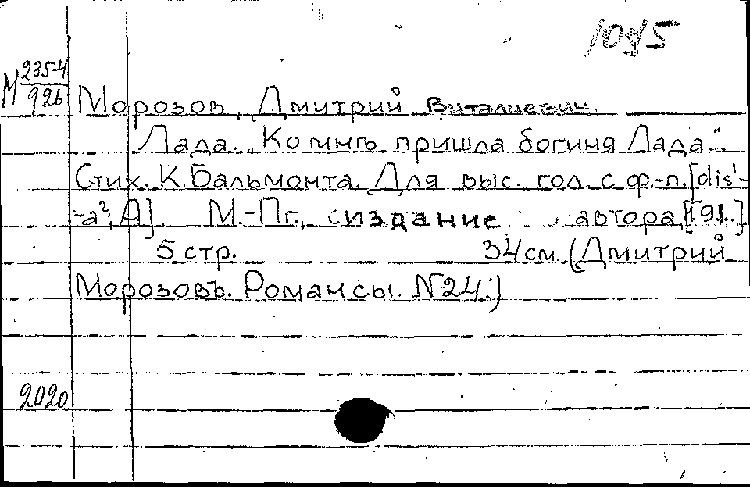 1045
М 235-4
926
Морозов, Дмитрий Витальевич.
Лада. „Ко мнѣ пришла богиня Лада".
Стих. К. Бальмонта. Для выс. гол. с ф.-п. [dis¹-
-a², A]. М.-Пг., издание автора, [191..]
5 стр. 34 см. (Дмитрий
Морозовъ. Романсы. №24.)
2020